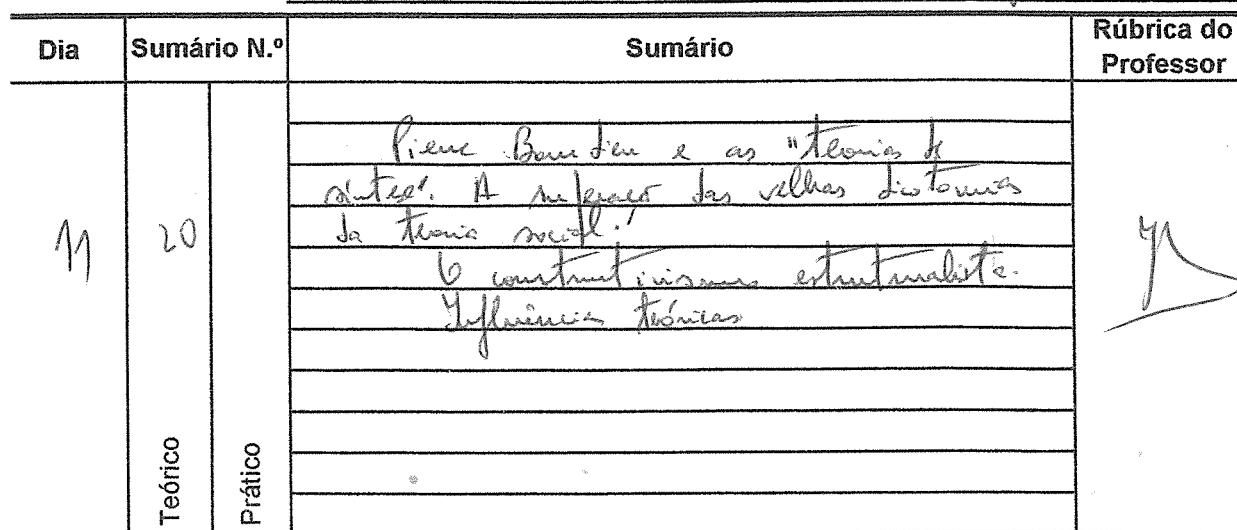 Dia Sumário N.º Sumário Rúbrica do Professor
Pierre Bourdieu e as "teorias de
síntese". A superação das velhas dicotomias
11 20 da teoria social.
O construtivismo estruturalista.
Influências teóricas
Teórico Prático